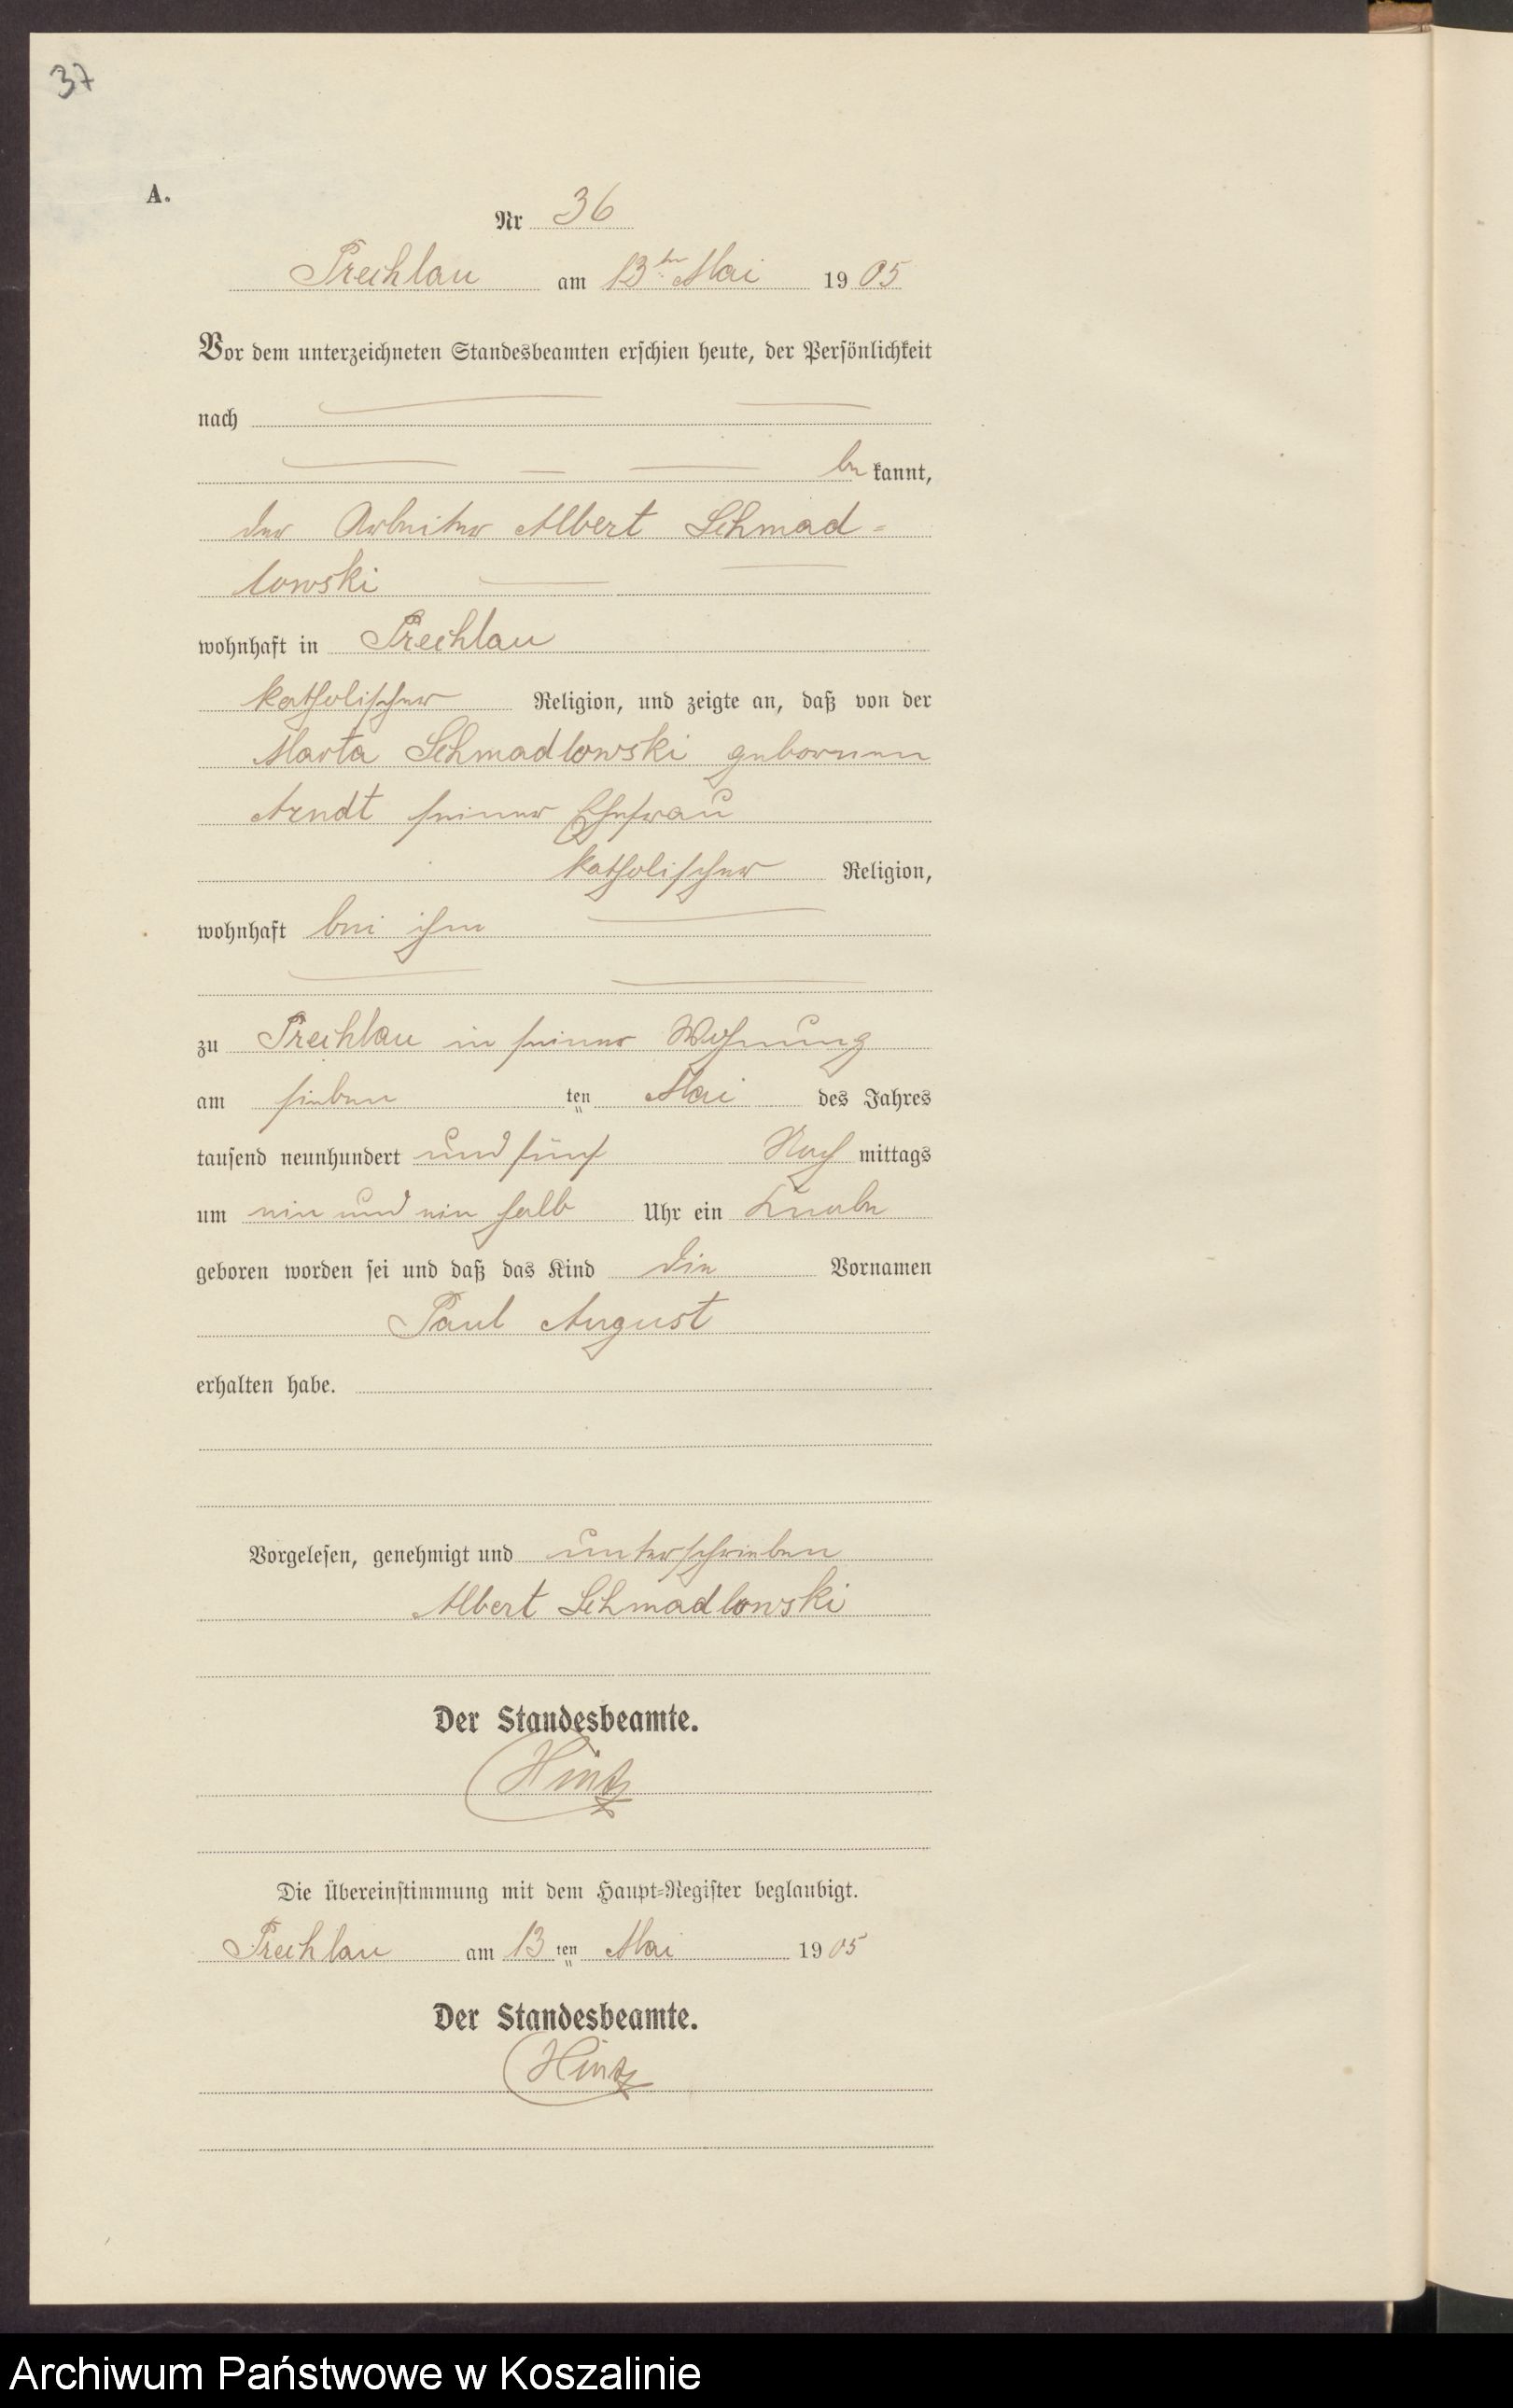 37
A.
Nr 36
Prechlau am 13ten Mai 1905
Vor dem unterzeichneten Standesbeamten erschien heute, der Persönlichkeit
nach
be kannt,
der Arbeiter Albert Schmad=
lowski
wohnhaft in Prechlau
katholischer Religion, und zeigte an, daß von der
Marta Schmadlowski geborenen
Arndt seiner Ehefrau
katholischer Religion,
wohnhaft bei ihm
zu Prechlau in seiner Wohnung
am sieben ten Mai des Jahres
tausend neunhundert und fünf Nach mittags
um ein und ein halb Uhr ein Knabe
geboren worden sei und daß das Kind die Vornamen
Paul August
erhalten habe.
Vorgelesen, genehmigt und unterschrieben
Albert Schmadlowski
Der Standesbeamte.
Hintz
Die Übereinstimmung mit dem Haupt-Register beglaubigt.
Prechlau am 13 ten Mai 1905
Der Standesbeamte.
Hintz
Archiwum Państwowe w Koszalinie